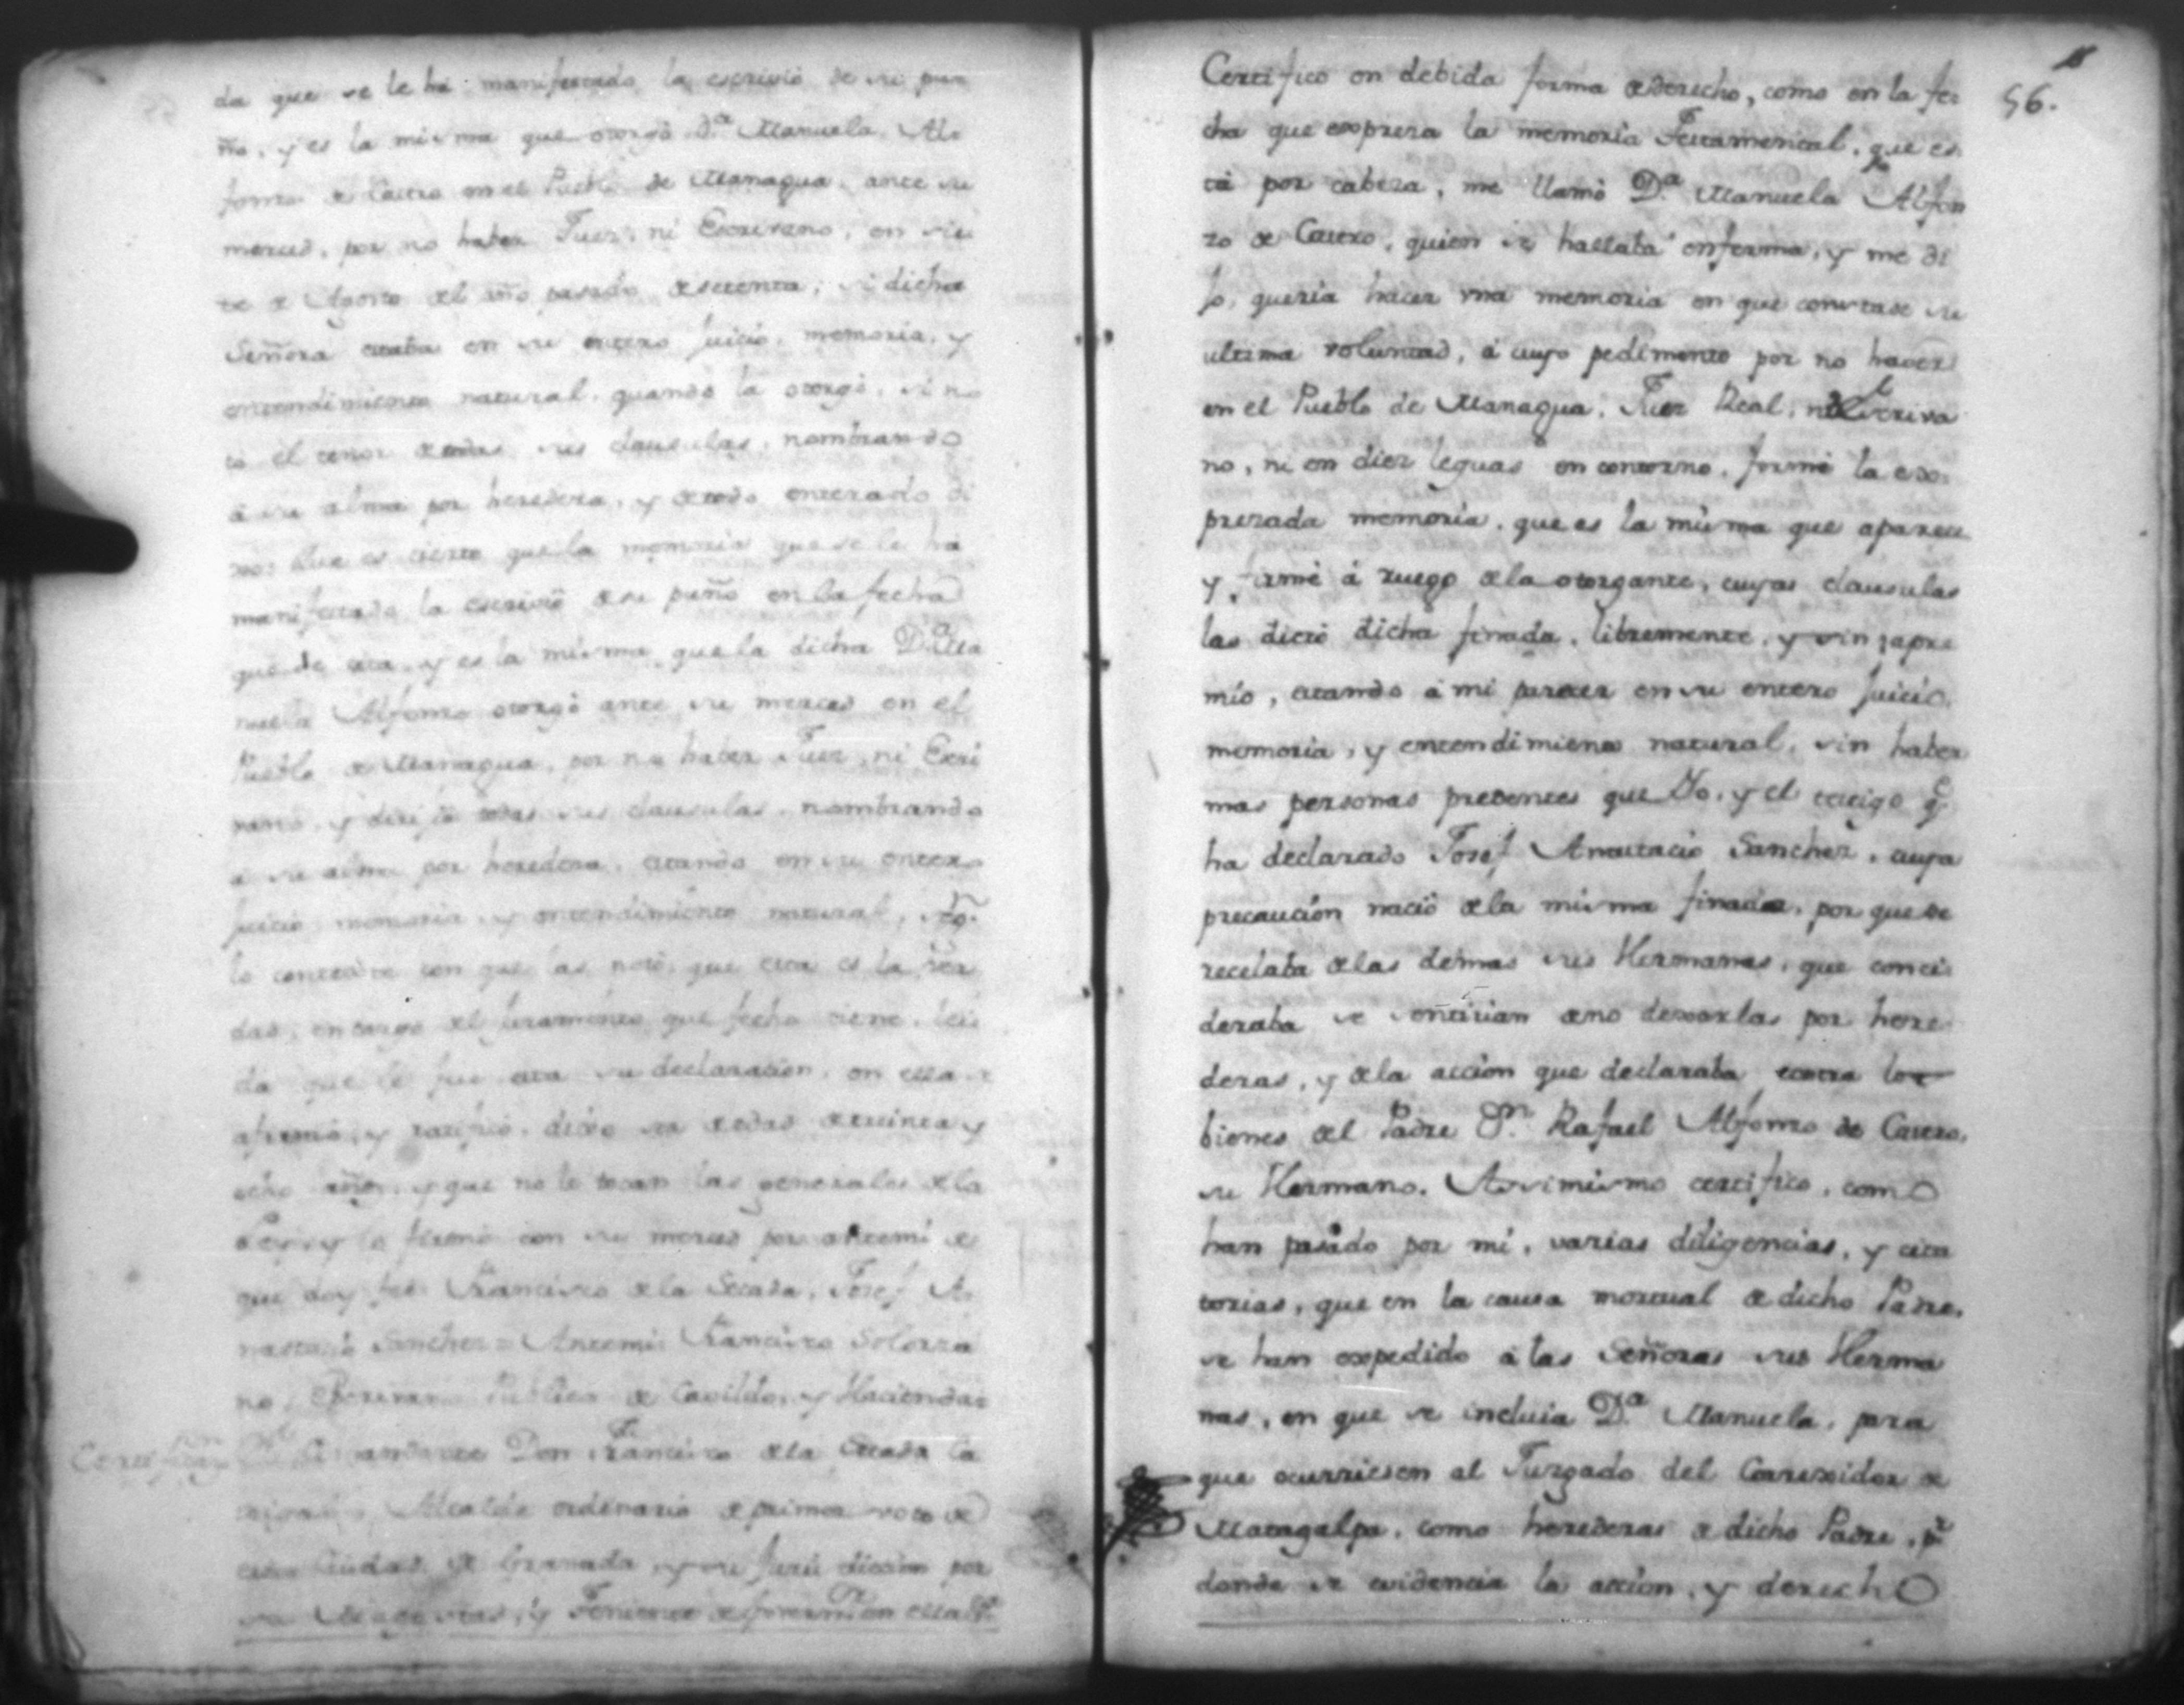 da que se le ha manifestado la escrivió de su pu
ño, y es la misma que otorgó D.ª Manuela Al
fonzo de Castro en el Pueblo de Managua, ante su
merced, por no haber Juez, ni Escrivano, en
de Agosto del año pasado de setenta; si dicha
Señora estaba en su entero juicio, memoria, y
entendimiento natural, quando la otorgó, si no
tó el tenor de todas sus clausulas, nombrando
á su alma por heredera, y de todo enterado di
xo: Que es cierto que la memoria que se le ha
manifestado la escrivió de su puño en la fecha
que de esta, y es la misma que la dicha D.ª Ma
nuela Alfonzo otorgó ante su merced en el
Pueblo de Managua, por no haber Juez, ni Escri
vano, y todas sus clausulas, nombrando
á su alma por heredera, estando en su entero
juicio memoria y entendimiento natural,
lo con que las notó, que esta es la ver
dad, en cargo del juramento que fecho tiene, lei
da que le fue esta su declaración, en ella se
afirmó, y ratificó, dixo ser de edad de treinta y
ocho años, y que no le tocan las generales de la
Ley, y lo firmó con su merced por antemí de
que doy feé. Francisco de la Secada, Josef A
nastacio Sanchez = Antemi Francisco Solorza
no, Escrivano Publico de Cavildo, y Hacienda =
Certificaz.on Don Francisco de la Secada
Alcalde ordinario de primer voto de
esta Ciudad de Granada, y su jurisdiccion por
su Magestad, y Teniente de en ella &.ª
56.
Certifico en debida forma de derecho, como en la fe
cha que expresa la memoria Testamental, que es
tá por cabeza, me llamó D.ª Manuela Alfon
zo de Castro, quien se hallaba enferma, y me di
jo, queria hacer una memoria en que constase su
ultima voluntad, á cuyo pedimento por no haver
en el Pueblo de Managua, Juez Real, ni Escriva
no, ni en diez leguas en contorno, formé la ex
presada memoria, que es la misma que aparece
y firmé á ruego de la otorgante, cuyas clausulas
las dictó dicha finada, libremente, y sin apre
mio, estando á mi parecer en su entero juicio,
memoria, y entendimiento natural, sin haber
mas personas presentes que Yo, y el testigo q.e
ha declarado Josef Anastacio Sanchez, cuya
precaución nació de la misma finada, por que se
recelaba de las demas sus Hermanas, que consi
deraba se sentirian de no dexarlas por here
deras, y de la accion que declaraba contra los
bienes del Padre D.n Rafael Alfonzo de Castro,
su Hermano. Assimismo certifico, como
han pasado por mi, varias diligencias, y cita
torias, que en la causa mortual de dicho Padre,
se han expedido á las Señoras sus Herma
nas, en que se incluia D.ª Manuela, para
que ocurriesen al Juzgado del Correxidor de
Matagalpa, como herederas de dicho Padre, p.r
donde se evidencia la accion, y derecho